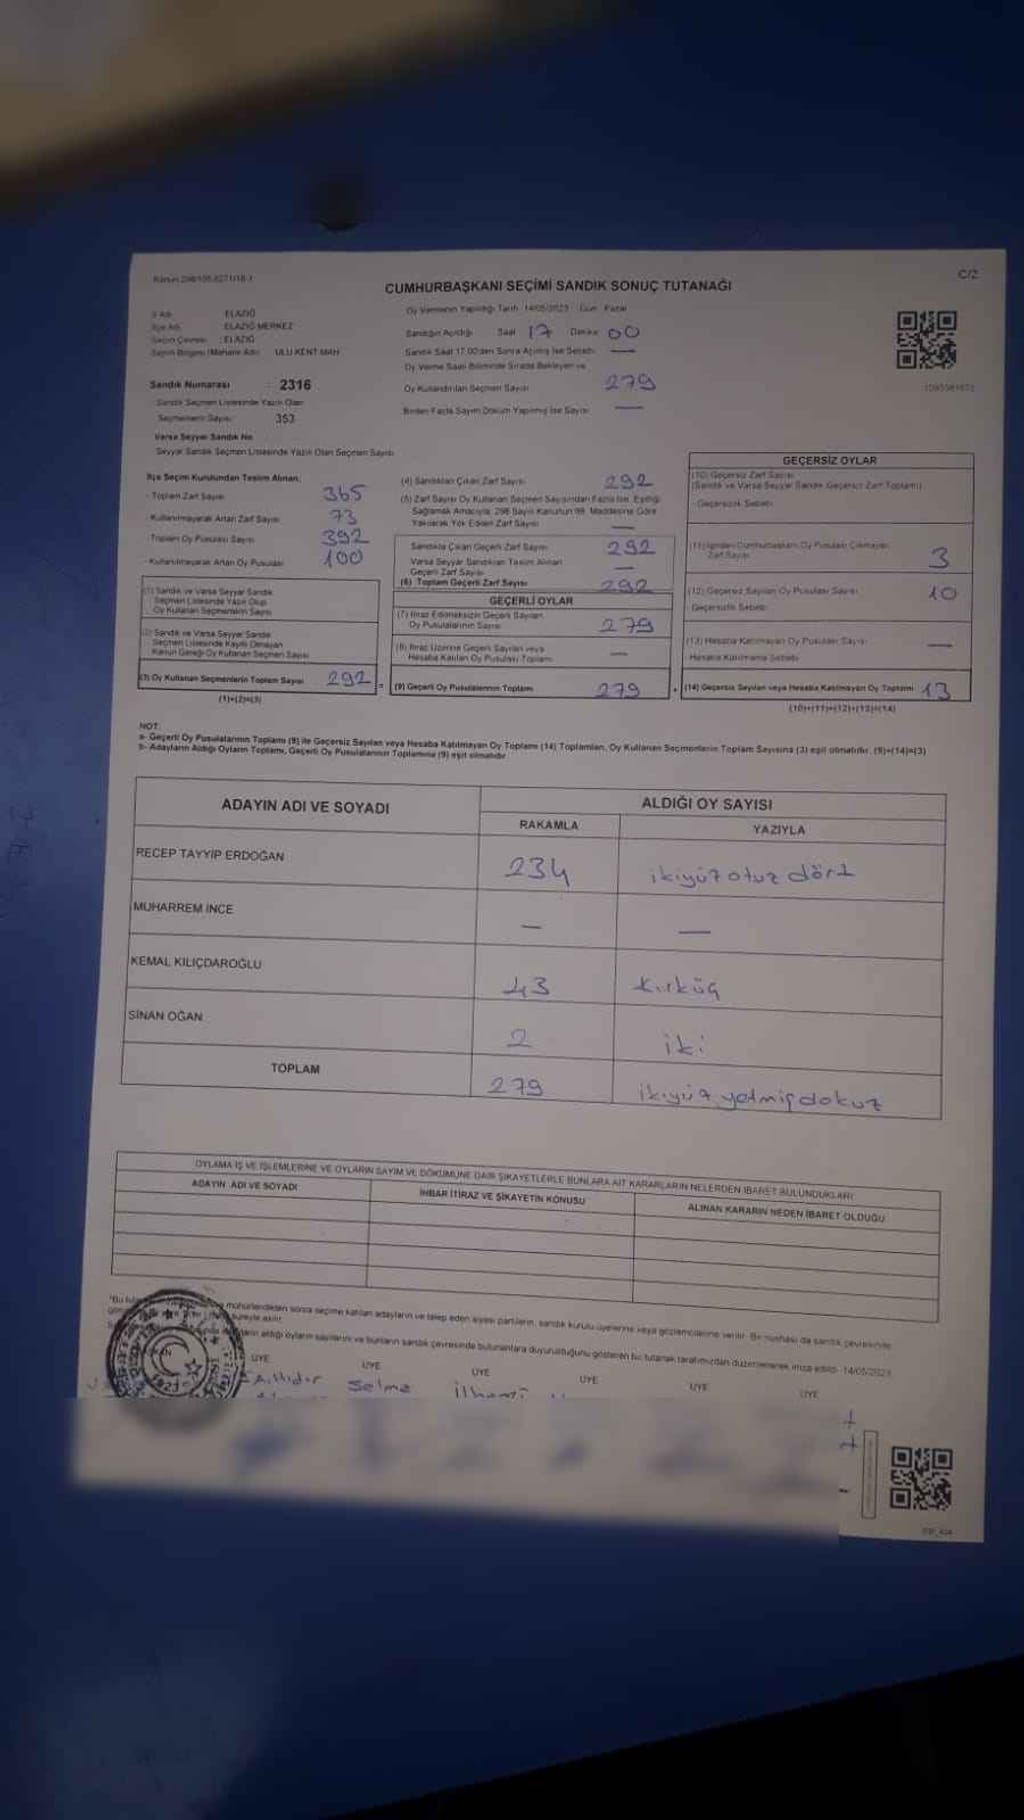 C/2
CUMHURBAŞKANI SEÇİMİ SANDIK SONUÇ TUTANAĞI
İl Adı : ELAZIĞ
İlçe Adı : ELAZIĞ MERKEZ
Seçim Çevresi : ELAZIĞ
Seçim Bölgesi (Mahalle Adı) : ULU KENT MAH
Sandık Numarası : 2316
Sandık Seçmen Listesinde Yazılı Olan
Seçmenlerin Sayısı : 353
Varsa Seyyar Sandık No
Seyyar Sandık Seçmen Listesinde Yazılı Olan Seçmen Sayısı
Oy Vermenin Yapıldığı Tarih 14/05/2023 Gün Pazar
Sandığın Açıldığı Saat 17 Dakika 00
Sandık Saat 17.00'den Sonra Açılmış İse Sebebi —
Oy Verme Saati Bitiminde Sırada Bekleyen ve
Oy Kullandırılan Seçmen Sayısı 279
Birden Fazla Sayım Döküm Yapılmış İse Sayısı —
İlçe Seçim Kurulundan Teslim Alınan;
- Toplam Zarf Sayısı 365
- Kullanılmayarak Artan Zarf Sayısı 73
- Toplam Oy Pusulası Sayısı 392
- Kullanılmayarak Artan Oy Pusulası 100
(1) Sandık ve Varsa Seyyar Sandık
Seçmen Listesinde Yazılı Olup
Oy Kullanan Seçmenlerin Sayısı
(2) Sandık ve Varsa Seyyar Sandık
Seçmen Listesinde Kayıtlı Olmayan
Kanun Gereği Oy Kullanan Seçmen Sayısı
(3) Oy Kullanan Seçmenlerin Toplam Sayısı 292
(1)+(2)=(3)
(4) Sandıktan Çıkan Zarf Sayısı 292
(5) Zarf Sayısı Oy Kullanan Seçmen Sayısından Fazla İse, Eşitliği
Sağlamak Amacıyla, 298 Sayılı Kanunun 98. Maddesine Göre
Yakılarak Yok Edilen Zarf Sayısı —
Sandıkta Çıkan Geçerli Zarf Sayısı 292
Varsa Seyyar Sandıktan Teslim Alınan
Geçerli Zarf Sayısı —
(6) Toplam Geçerli Zarf Sayısı 292
GEÇERLİ OYLAR
(7) İtiraz Edilmeksizin Geçerli Sayılan
Oy Pusulalarının Sayısı 279
(8) İtiraz Üzerine Geçerli Sayılan veya
Hesaba Katılan Oy Pusulası Toplamı —
(9) Geçerli Oy Pusulalarının Toplamı 279
GEÇERSİZ OYLAR
(10) Geçersiz Zarf Sayısı
(Sandık ve Varsa Seyyar Sandık Geçersiz Zarf Toplamı)
- Geçersizlik Sebebi:
(11) İçinden Cumhurbaşkanı Oy Pusulası Çıkmayan
Zarf Sayısı 3
(12) Geçersiz Sayılan Oy Pusulası Sayısı 10
Geçersizlik Sebebi:
(13) Hesaba Katılmayan Oy Pusulası Sayısı —
Hesaba Katılmama Sebebi:
(14) Geçersiz Sayılan veya Hesaba Katılmayan Oy Toplamı 13
(10)+(11)+(12)+(13)=(14)
NOT:
a- Geçerli Oy Pusulalarının Toplamı (9) ile Geçersiz Sayılan veya Hesaba Katılmayan Oy Toplamı (14) Toplamları, Oy Kullanan Seçmenlerin Toplam Sayısına (3) eşit olmalıdır. (9)+(14)=(3)
b- Adayların Aldığı Oyların Toplamı, Geçerli Oy Pusulalarının Toplamına (9) eşit olmalıdır
ADAYIN ADI VE SOYADI ALDIĞI OY SAYISI
RAKAMLA YAZIYLA
RECEP TAYYİP ERDOĞAN 234 ikiyüz otuz dört
MUHARREM İNCE — —
KEMAL KILIÇDAROĞLU 43 kırküç
SİNAN OĞAN 2 iki
TOPLAM 279 ikiyüz yetmiş dokuz
OYLAMA İŞ VE İŞLEMLERİNE VE OYLARIN SAYIM VE DÖKÜMÜNE DAİR ŞİKAYETLERLE BUNLARA AİT KARARLARIN NELERDEN İBARET BULUNDUKLARI
ADAYIN ADI VE SOYADI İHBAR İTİRAZ VE ŞİKAYETİN KONUSU ALINAN KARARIN NEDEN İBARET OLDUĞU
mühürlendikten sonra seçime katılan adayların ve talep eden siyasi partilerin, sandık kurulu üyelerine veya gözlemcilerine verilir. Bir nüshası da sandık çevresinde
süreyle asılır.
aldığı oyların sayılarını ve bunların sandık çevresinde bulunanlara duyurulduğunu gösteren bu tutanak tarafımızdan düzenlenerek imza edildi. 14/05/2023
ÜYE ÜYE ÜYE ÜYE ÜYE ÜYE
Selma ilhami